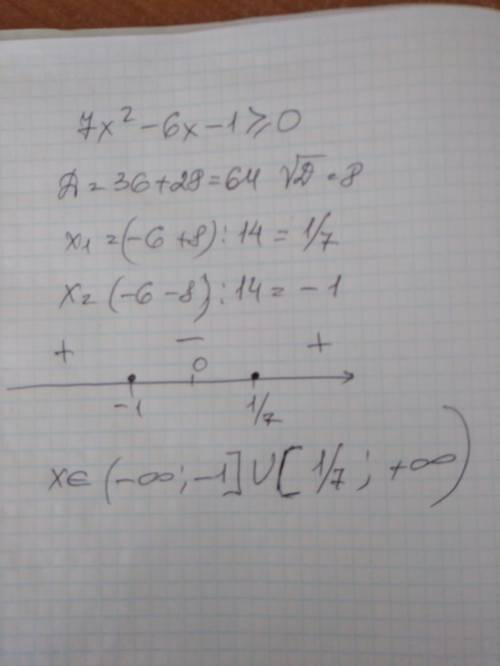 7x² - 6x - 1 ⩾ 0
D = 36 + 28 = 64 √D = 8
x₁ = (-6 + 8) : 14 = 1/7
x₂ = (-6 - 8) : 14 = -1
+ − +
0
-1 1/7
x ∈ (-∞; -1] ∪ [1/7; +∞)